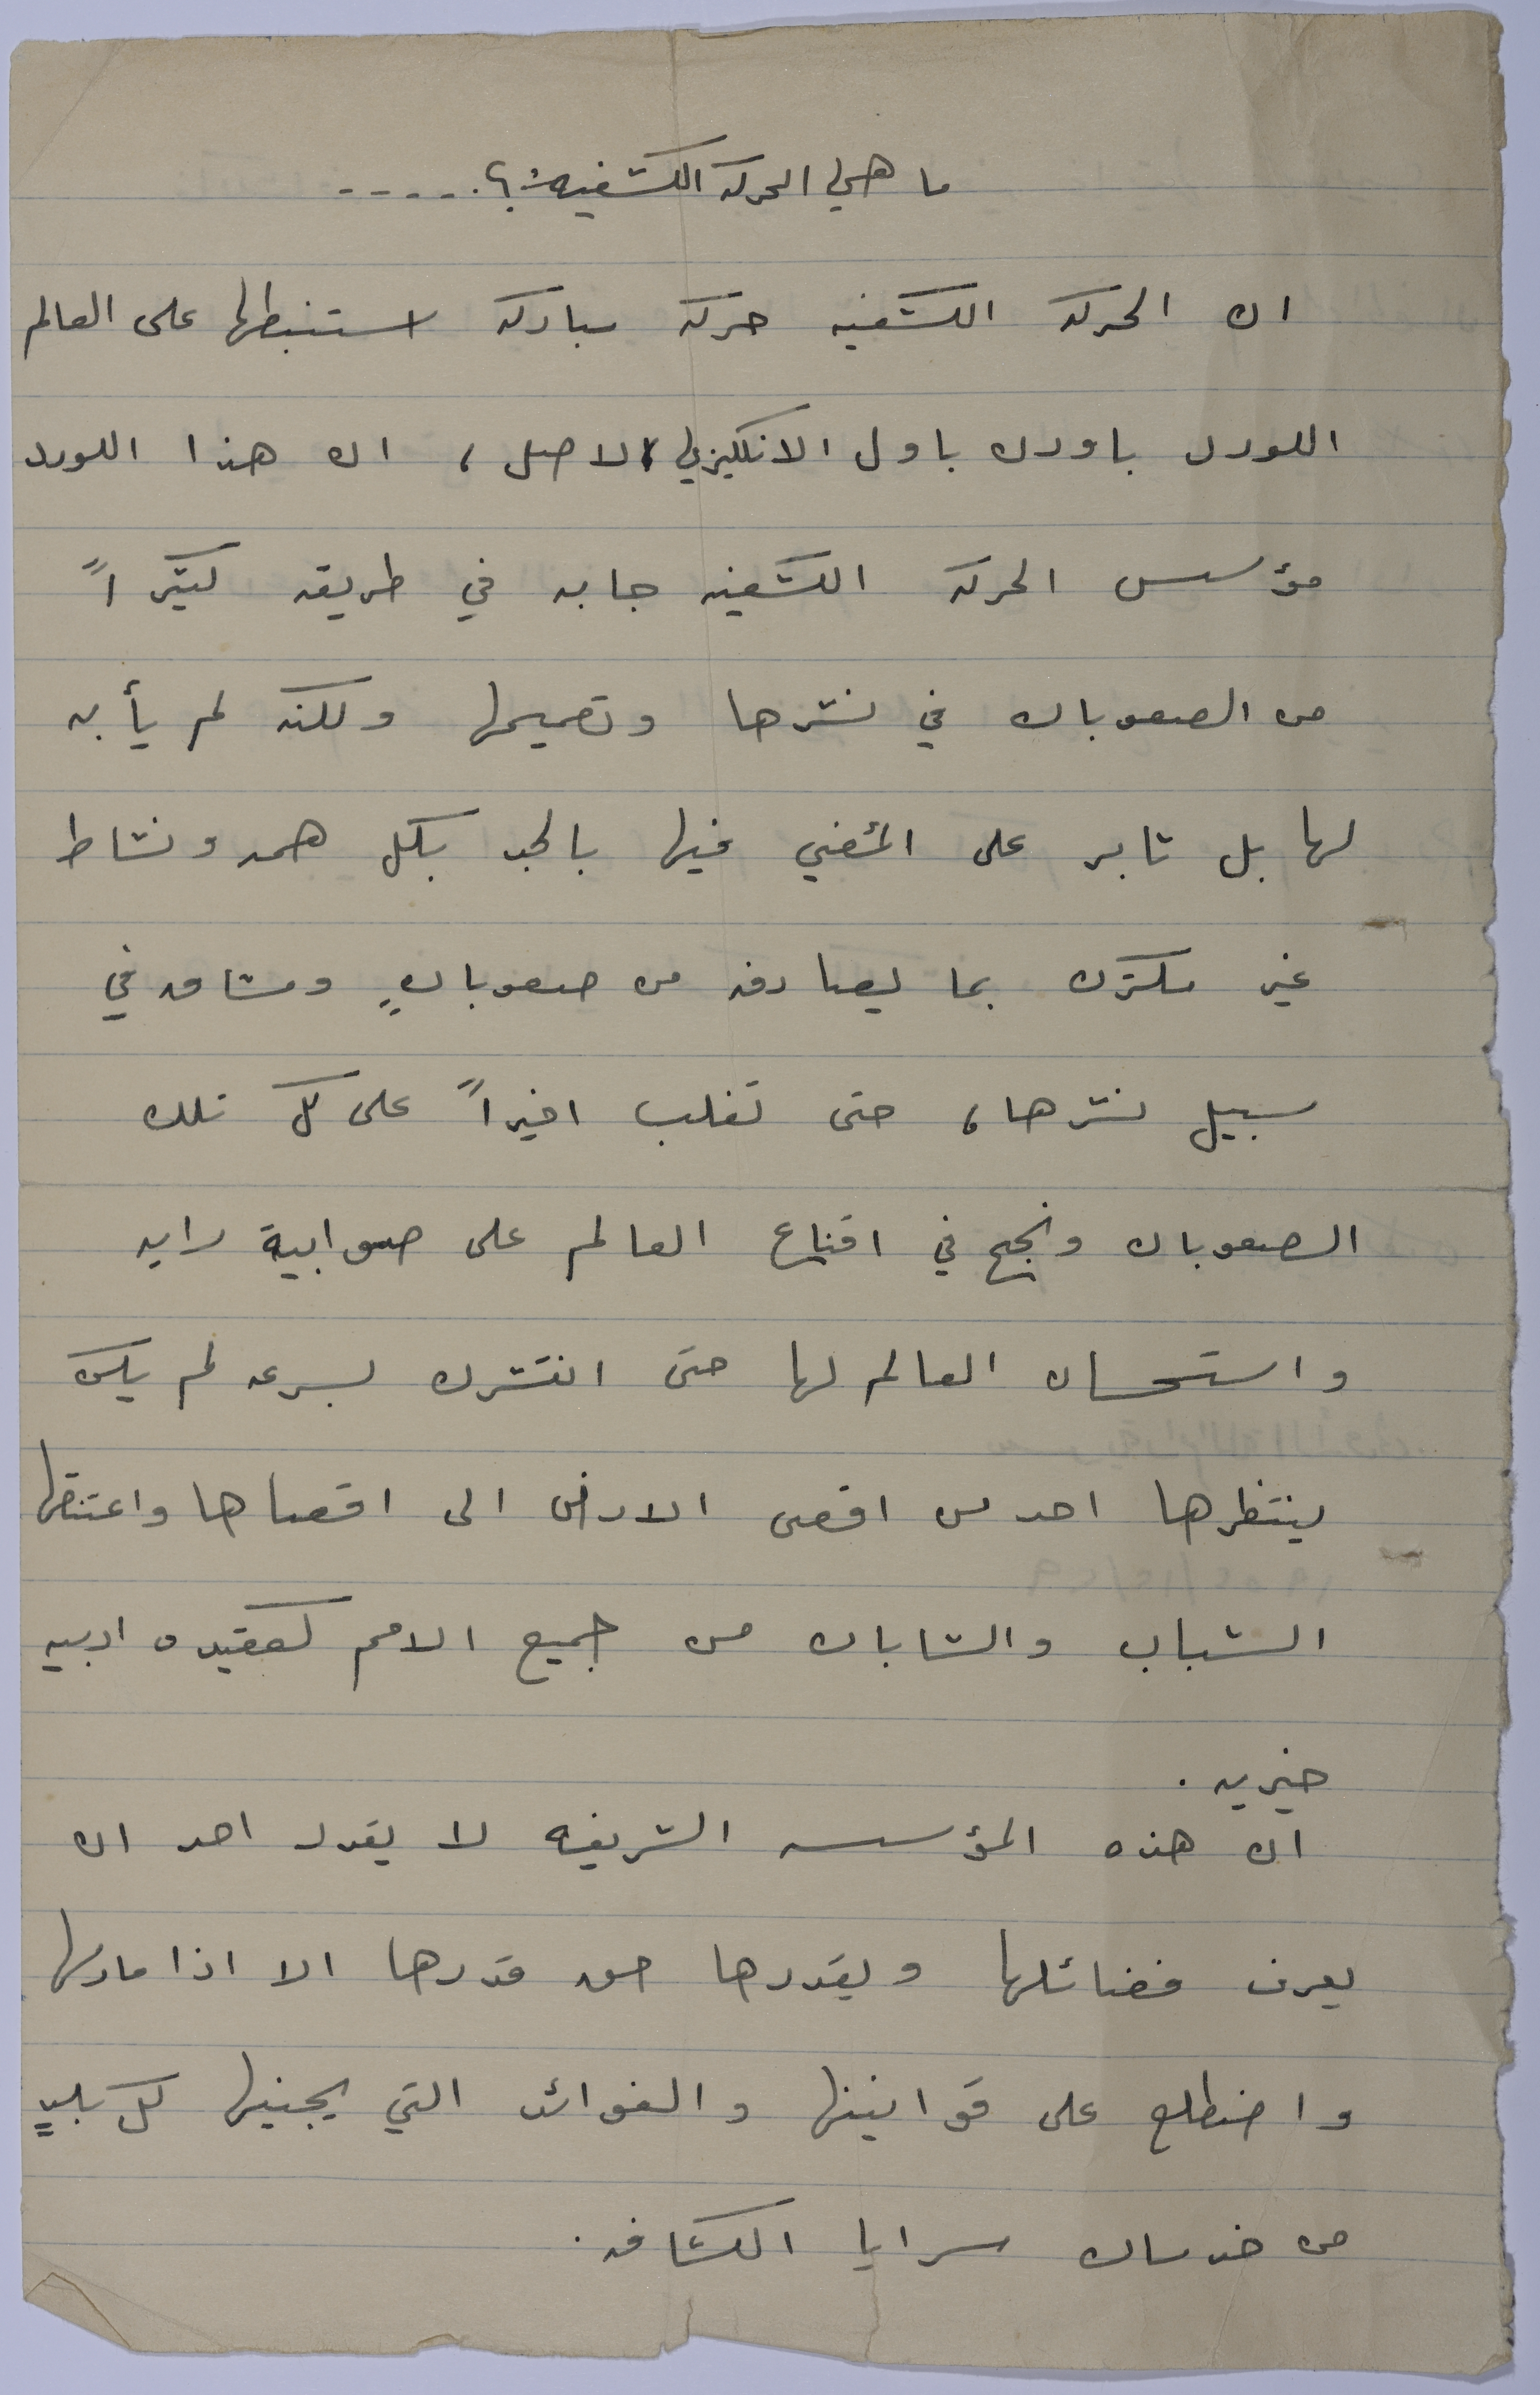 ما هي الحركه الكشفيه:؟.....
ان الحركه الكشفيه حركه مباركه استنبطها على العالم
اللورد بادن باول الانكليزي الاصل، ان هذا اللورد
مؤسس الحركه الكشفيه جابه في طريقه كثيراً
من الصعوبات في نشرها وتعميمها ولكنه لم يأبه
لها بل ثابر على المضي فيها بالجد بكل همه ونشاط
غير مكترث بما يصادفه من صعوباتٍ ومشاق في
سبيل نشرها، حتى تغلب اخيراً على كل تلك
الصعوبات ونجح في اقناع العالم على صوابية رايه
واستحسان العالم لها حتى انتشرت بسرعه لم يكن
ينتظرها احد من اقصى الارض الى اقصاها واعتنقها
الشباب والشابات من جميع الامم كعقيده ادبيه
خيريه.
ان هذه المؤسسه الشريفه لا يقدر احد ان
يعرف فضائلها ويقدرها حق قدرها الا اذا مارسها
واضطلع على قوانينها والفوائد التي يجنيها كل بلدٍ
من خدمات سرايا الكشافه.